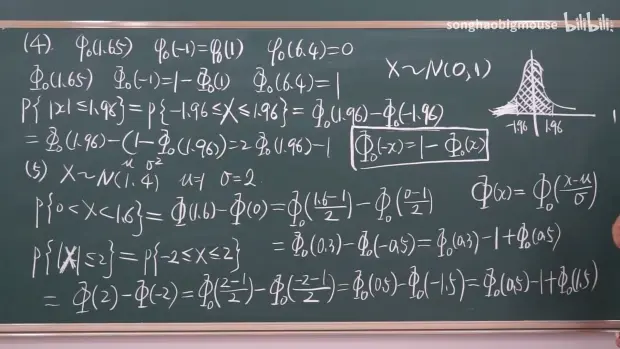 songhaobigmouse bilibili
(4). φ₀(1.65) φ₀(-1)=φ₀(1) φ₀(6.4)=0
Φ₀(1.65) Φ₀(-1)=1-Φ₀(1) Φ₀(6.4)=1 X~N(0,1)
P{|x|≤1.96}=P{-1.96≤X≤1.96}=Φ₀(1.96)-Φ₀(-1.96)
-1.96 1.96
=Φ₀(1.96)-(1-Φ₀(1.96))=2Φ₀(1.96)-1 Φ₀(-x)=1-Φ₀(x)
μ σ²
(5) X~N(1,4) μ=1 σ=2
P{0<X<1.6}=Φ(1.6)-Φ(0)=Φ₀(1.6-1/2)-Φ₀(0-1/2) Φ(x)=Φ₀(x-μ/σ)
=Φ₀(0.3)-Φ₀(-0.5)=Φ₀(0.3)-1+Φ₀(0.5)
P{|X|≤2}=P{-2≤X≤2}
=Φ(2)-Φ(-2)=Φ₀(2-1/2)-Φ₀(-2-1/2)=Φ₀(0.5)-Φ₀(-1.5)=Φ₀(0.5)-1+Φ₀(1.5)